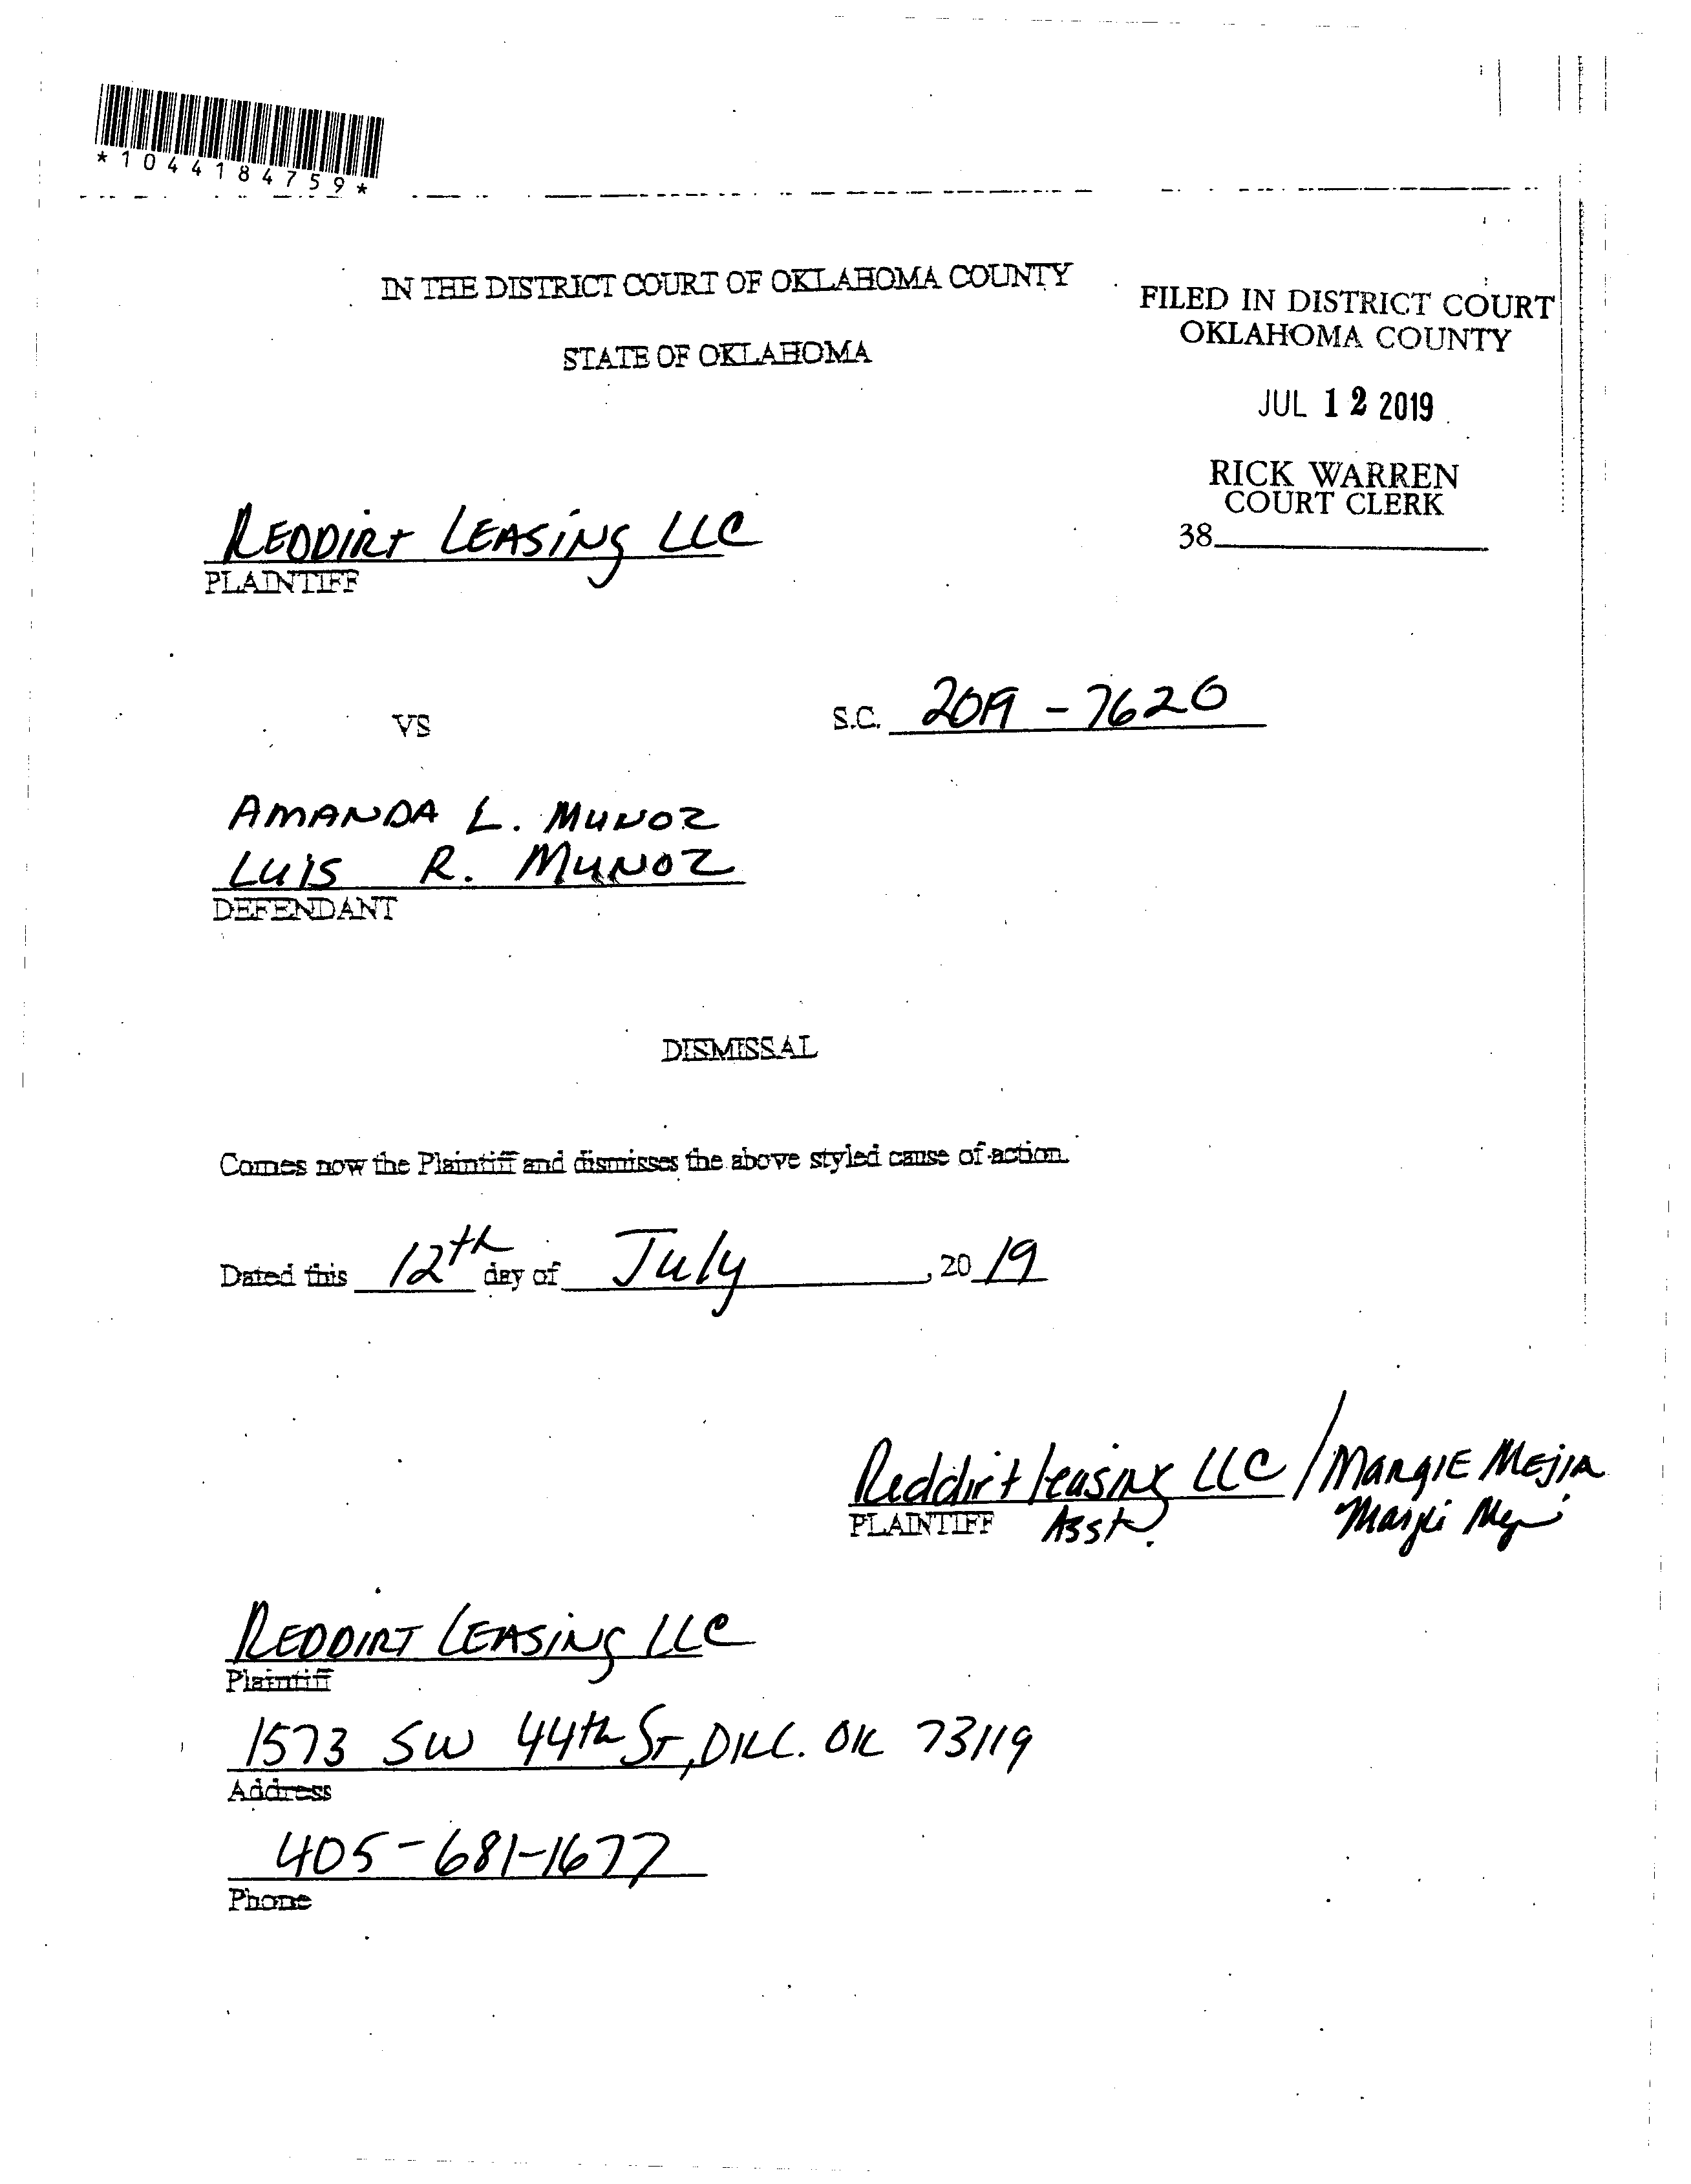 *1044184759*
IN THE DISTRICT COURT OF OKLAHOMA COUNTY
STATE OF OKLAHOMA
FILED IN DISTRICT COURT
OKLAHOMA COUNTY
JUL 12 2019
RICK WARREN
COURT CLERK
38
REDDIRT LEASING LLC
PLAINTIFF
VS
S.C. 2019-7620
AMANDA L. MUNOZ
LUIS R. MUNOZ
DEFENDANT
DISMISSAL
Comes now the Plaintiff and dismisses the above styled cause of action.
Dated this 12th day of July, 20 19
Reddirt Leasing LLC / MARGIE MEJIA
PLAINTIFF Asst.
REDDIRT LEASING LLC
Plaintiff
1573 SW 44th ST, OK 73119
Address
405-681-1677
Phone